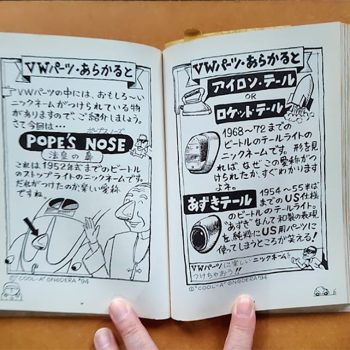 VWパーツ・あらかると
VWパーツの中には、おもしろ〜い
ニックネームがつけられている物
がありますので、ご紹介しましょう。
さて今回は…
POPE'S NOSE
法皇の鼻
これは1952年式までのビートル
のストップライトのニックネームです。
だれがつけたのか楽しい愛称
ですね
©"COOL-A" ONODERA '94
VWパーツ・あらかると
アイロン・テール
OR
ロケットテール
1968〜72までの
ビートルのテールライトの
ニックネームです。形を見
れば なぜ この愛称がつ
けられたか、すぐわかります
よネ。
あずきテール
1954〜55まで
のUS仕様
のビートルのテールライト。
"あずき"なんて和製の表現
を純粋にUS用パーツに
使ってしまうところが笑える!
VWパーツに楽しいニックネームを
つけちゃおう!!
©"COOL-A" ONODERA '94